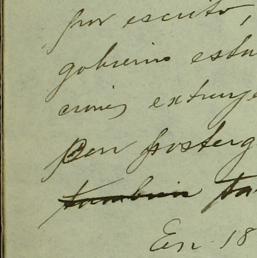 por escrito,
gobierno esta
ciones extranje
Con posterg
también ta
En 18